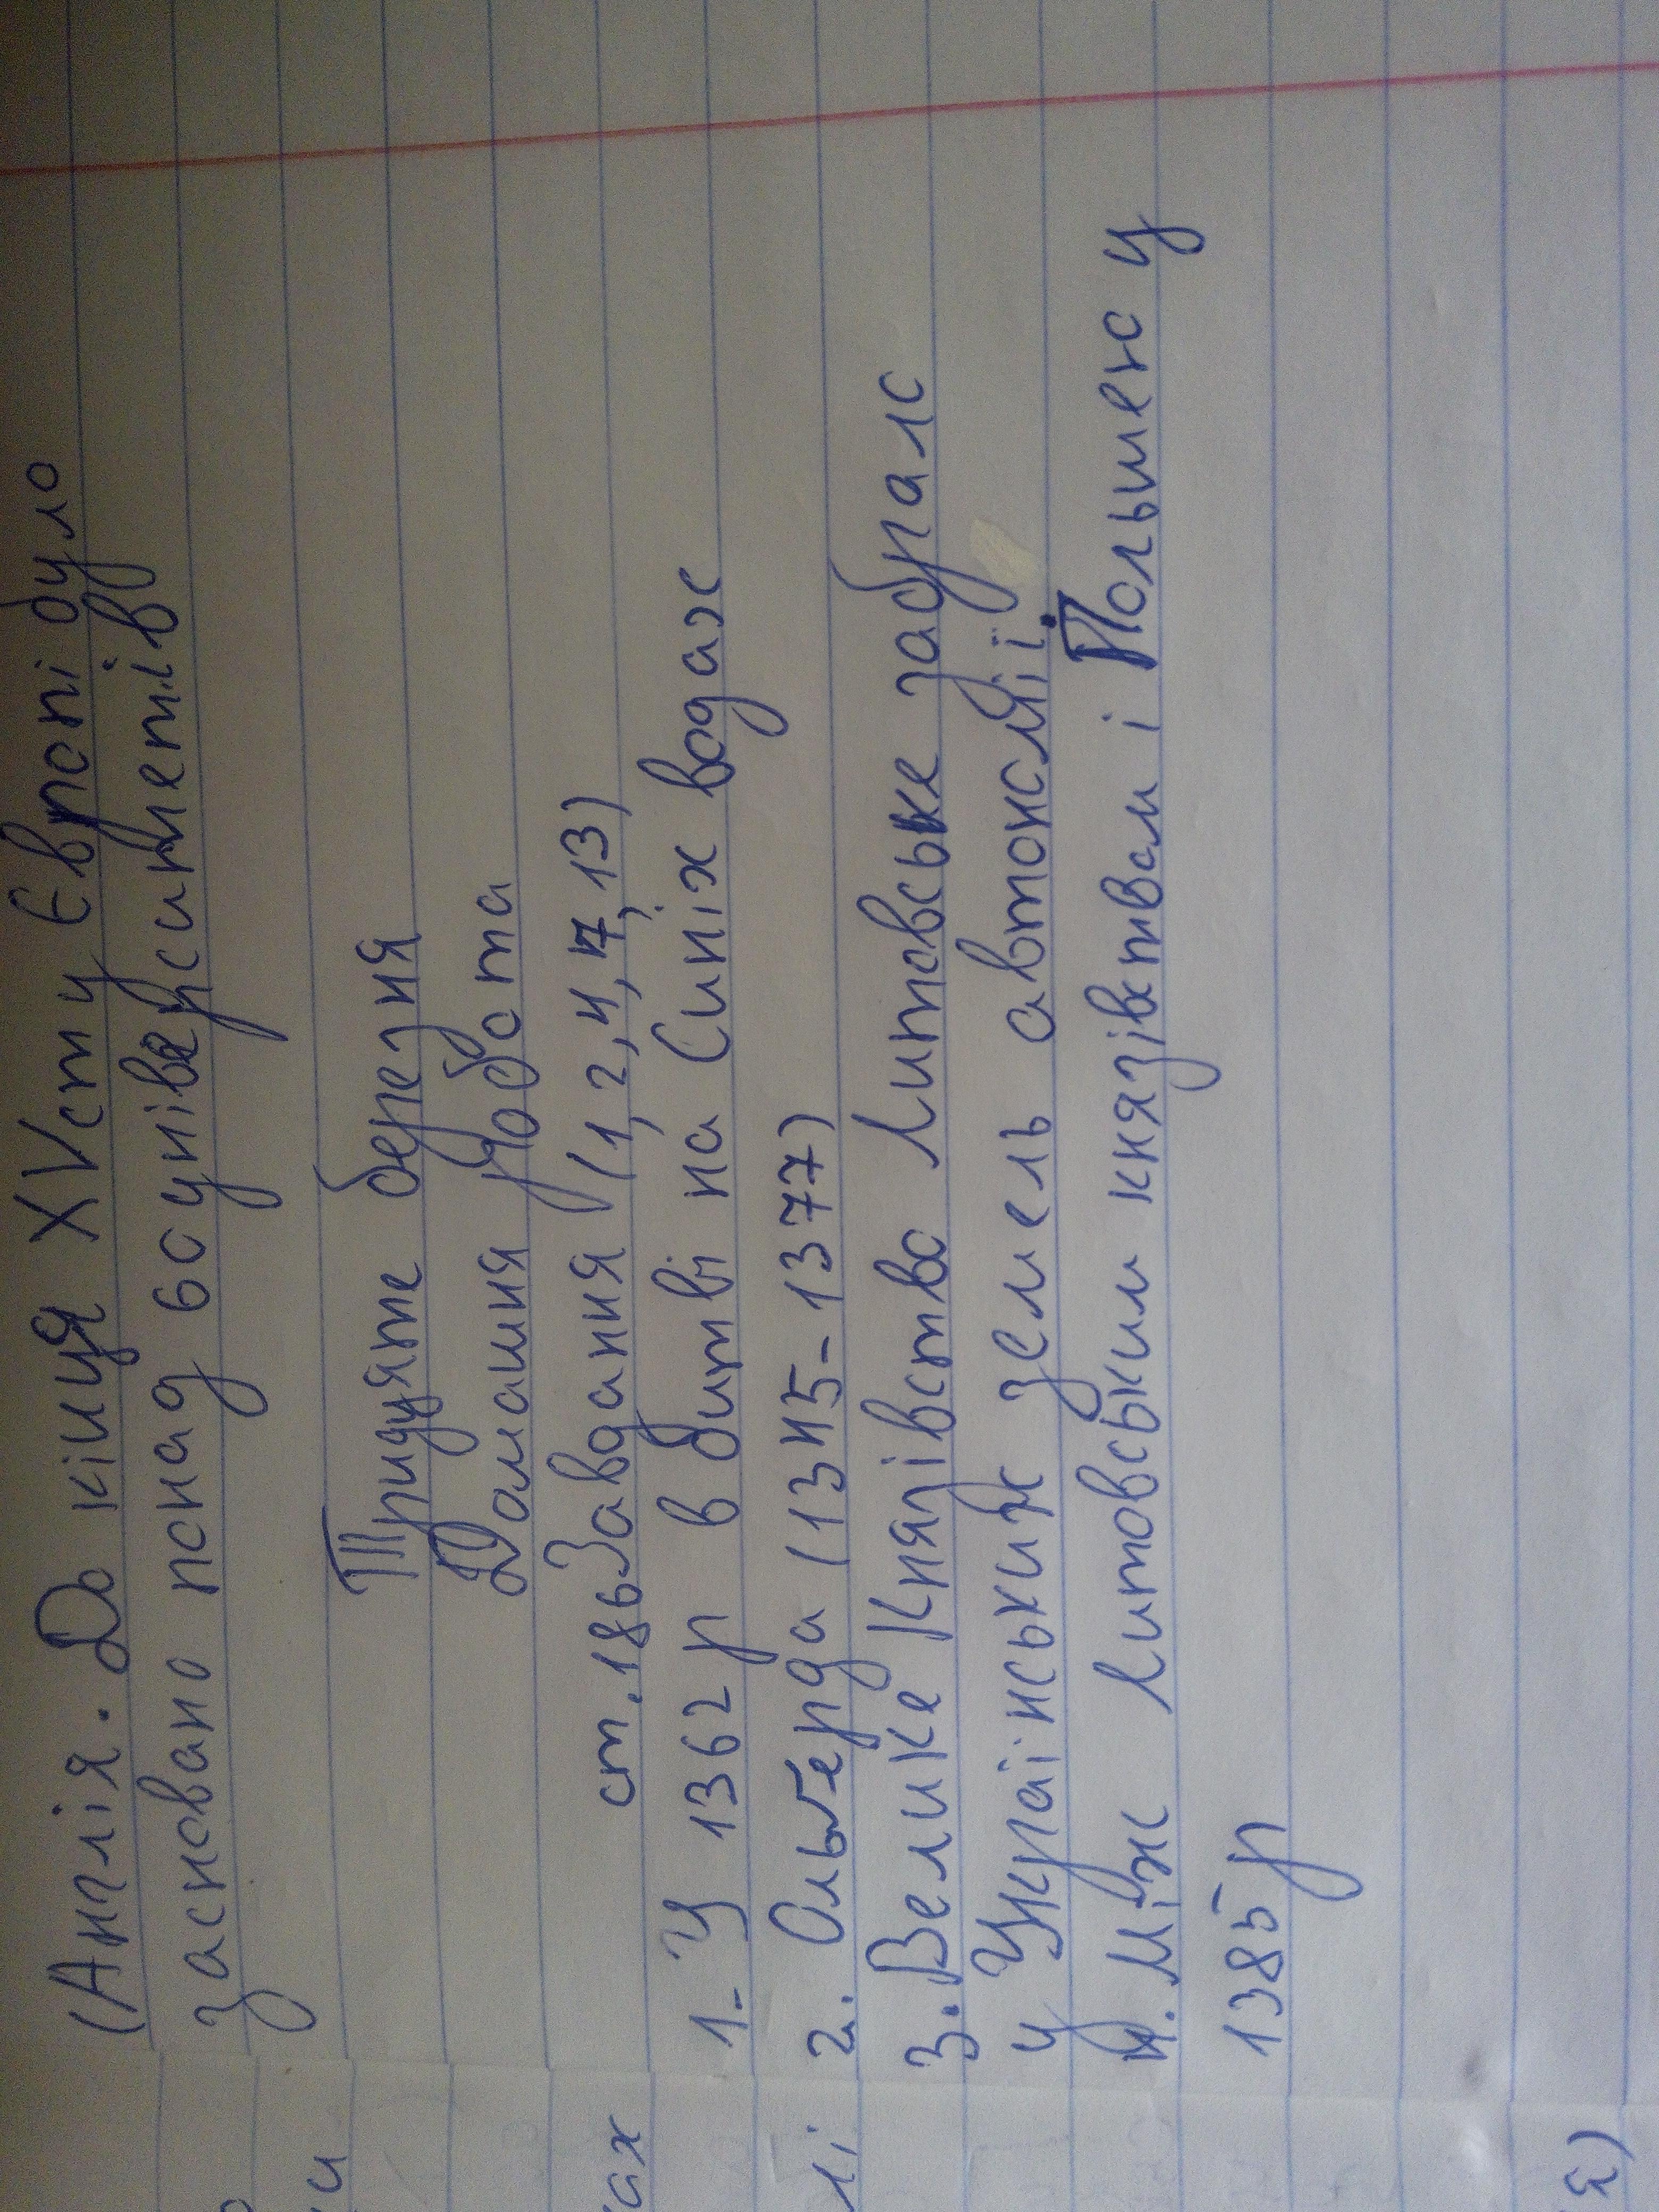 (Англія. До кінця XV ст у Європі було
засновано понад 60 університетів
Тридцяте березня
Домашня робота
ст. 186 Завдання (1, 2, 4, 7, 13)
1- У 1362 р в битві на Синіх водах
2. Ольґерда (1345-1377)
3. Велике Князівство Литовське забрало
у Українських земель автономії.
4. Між Литовським князівтвом і Польшею у
1385 р
ах
лі
я)